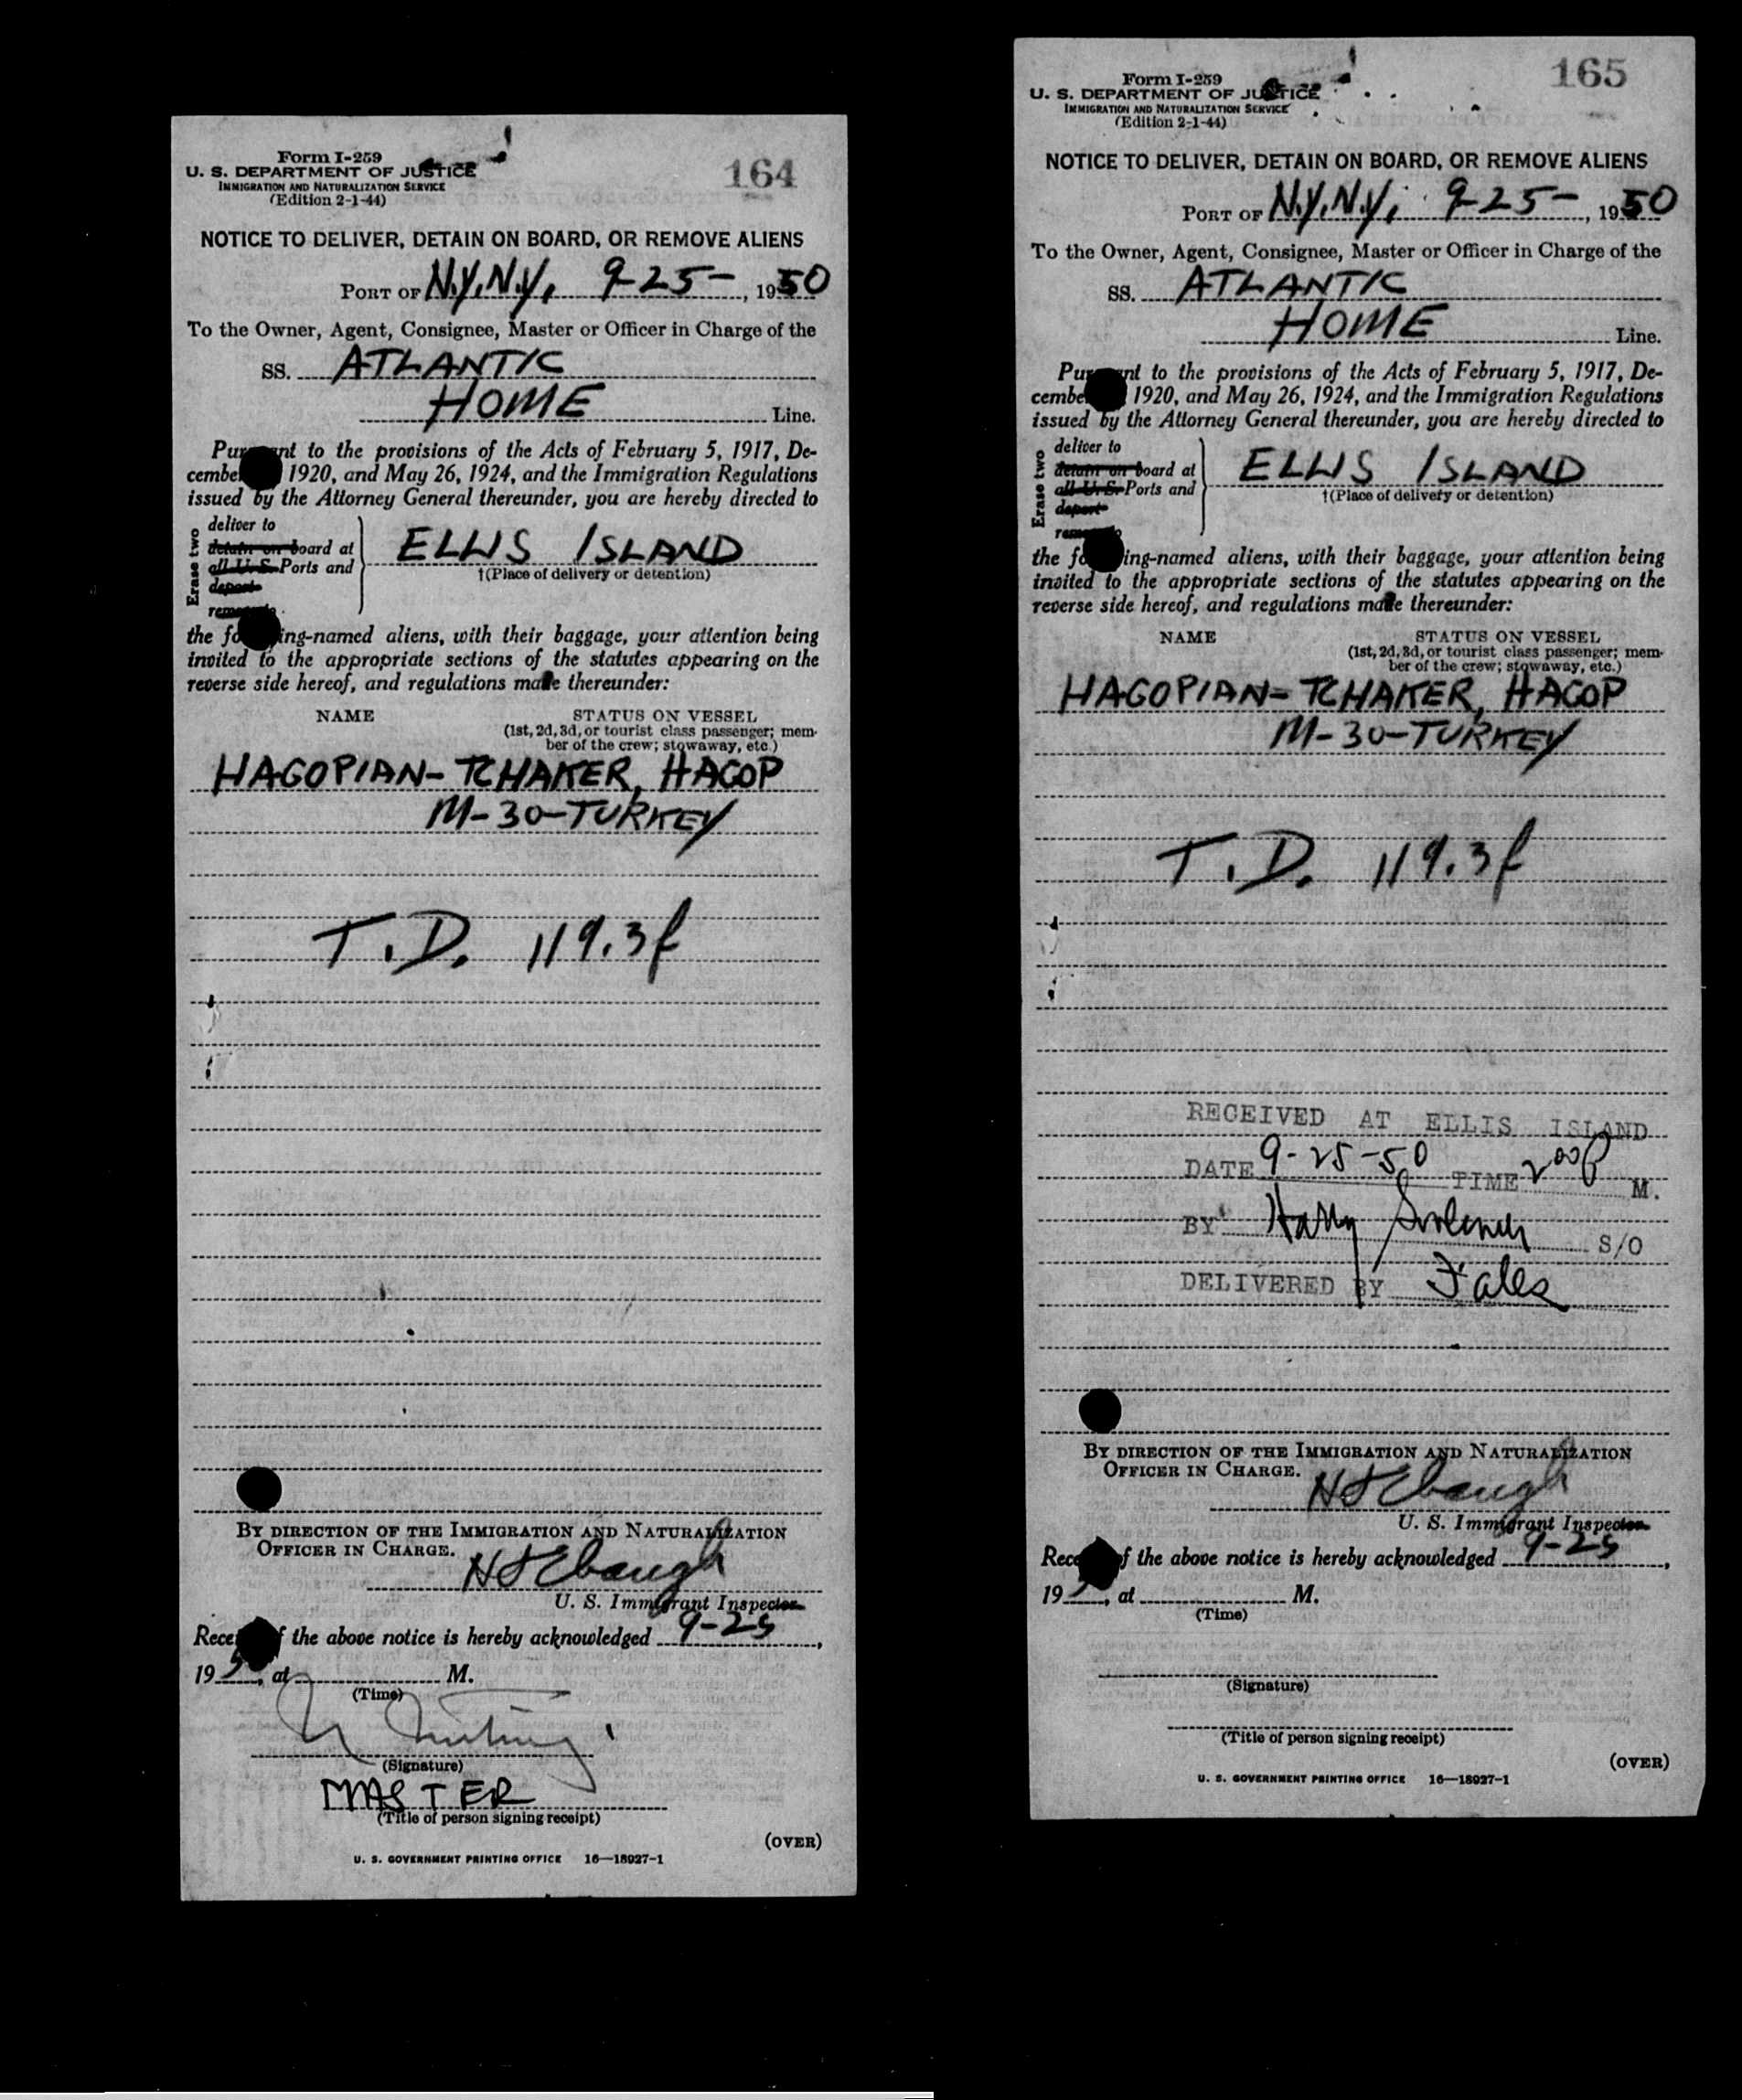 Form I-259
U. S. DEPARTMENT OF JUSTICE
IMMIGRATION AND NATURALIZATION SERVICE
(Edition 2-1-44)
164
NOTICE TO DELIVER, DETAIN ON BOARD, OR REMOVE ALIENS
PORT OF N.Y.N.Y. 9-25-, 1950
To the Owner, Agent, Consignee, Master or Officer in Charge of the
SS. ATLANTIC
HOME Line.
to the provisions of the Acts of February 5, 1917, De-
cembe 1920, and May 26, 1924, and the Immigration Regulations
issued by the Attorney General thereunder, you are hereby directed to
Erase two
deliver to
detain on board at
all U.S. Ports and
deport
ELLIS ISLAND
†(Place of delivery or detention)
the ing-named aliens, with their baggage, your attention being
invited to the appropriate sections of the statutes appearing on the
reverse side hereof, and regulations made thereunder:
NAME STATUS ON VESSEL
(1st, 2d, 3d, or tourist class passenger; mem-
ber of the crew; stowaway, etc.)
HAGOPIAN-TCHAKER, HAGOP
M-30-TURKEY
T.D. 119.3f
BY DIRECTION OF THE IMMIGRATION AND NATURALIZATION
OFFICER IN CHARGE.
Ebaugh
U. S. Immigrant Inspector
of the above notice is hereby acknowledged 9-25,
195 , at M.
(Time)
(Signature)
MASTER
(Title of person signing receipt)
(OVER)
U. S. GOVERNMENT PRINTING OFFICE 16—18927-1
Form I-259
U. S. DEPARTMENT OF JUSTICE
IMMIGRATION AND NATURALIZATION SERVICE
(Edition 2-1-44)
165
NOTICE TO DELIVER, DETAIN ON BOARD, OR REMOVE ALIENS
PORT OF N.Y.N.Y. 9-25-, 1950
To the Owner, Agent, Consignee, Master or Officer in Charge of the
SS. ATLANTIC
HOME Line.
to the provisions of the Acts of February 5, 1917, De-
cembe 1920, and May 26, 1924, and the Immigration Regulations
issued by the Attorney General thereunder, you are hereby directed to
Erase two
deliver to
detain on board at
all U.S. Ports and
deport
ELLIS ISLAND
†(Place of delivery or detention)
the ing-named aliens, with their baggage, your attention being
invited to the appropriate sections of the statutes appearing on the
reverse side hereof, and regulations made thereunder:
NAME STATUS ON VESSEL
(1st, 2d, 3d, or tourist class passenger; mem-
ber of the crew; stowaway, etc.)
HAGOPIAN-TCHAKER, HAGOP
M-30-TURKEY
T.D. 119.3f
RECEIVED AT ELLIS ISLAND
DATE 9-25-50 TIME 2 00 P M.
BY Harry S/O
DELIVERED BY Fales
BY DIRECTION OF THE IMMIGRATION AND NATURALIZATION
OFFICER IN CHARGE.
Ebaugh
U. S. Immigrant Inspector
of the above notice is hereby acknowledged 9-25,
195 , at M.
(Time)
(Signature)
(Title of person signing receipt)
(OVER)
U. S. GOVERNMENT PRINTING OFFICE 16—18927-1